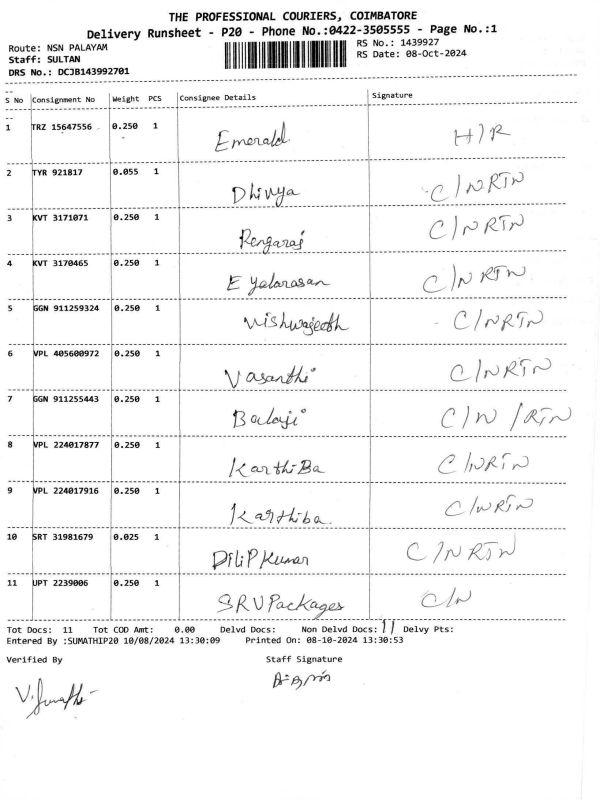 THE PROFESSIONAL COURIERS, COIMBATORE
Delivery Runsheet - P20 - Phone No.:0422-3505555 - Page No.:1
Route: NSN PALAYAM RS No.: 1439927
Staff: SULTAN RS Date: 08-Oct-2024
DRS No.: DCJB143992701
S No Consignment No Weight PCS Consignee Details Signature
1 TRZ 15647556 0.250 1 Emerald H/R
2 TYR 921817 0.055 1 Dhivya C/NRTN
3 KVT 3171071 0.250 1 Rengaraj C/NRTN
4 KVT 3170465 0.250 1 E yelarasan C/NRTN
5 GGN 911259324 0.250 1 Vishwajeeth C/NRTN
6 VPL 405600972 0.250 1 Vasanthi C/NRTN
7 GGN 911255443 0.250 1 Balaji C/N/RTN
8 VPL 224017877 0.250 1 KarthiBa C/NRTN
9 VPL 224017916 0.250 1 Karthiba. C/NRTN
10 SRT 31981679 0.025 1 DiliP Kumar C/NRTN
11 UPT 2239006 0.250 1 SRV Packages C/N
Tot Docs: 11 Tot COD Amt: 0.00 Delvd Docs: Non Delvd Docs: 11 Delvy Pts:
Entered By :SUMATHIP20 10/08/2024 13:30:09 Printed On: 08-10-2024 13:30:53
Verified By Staff Signature